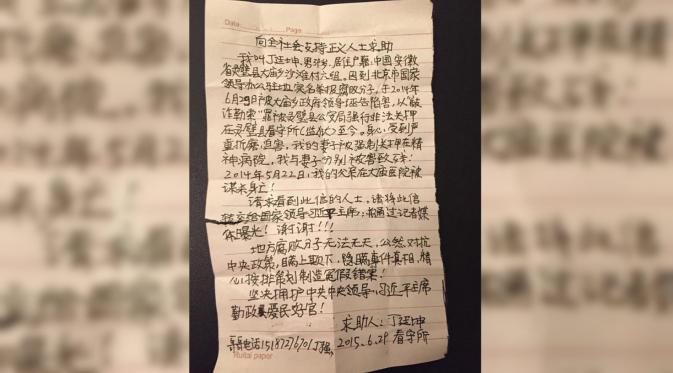 Date: Page
向全社会支持正义人士求助
我叫丁廷坤,男,岁,居住户籍:中国安徽
省灵璧县大庙乡沙滩村六组。因到北京市国家
领导办公驻地实名举报腐败分子,于2014年
6月29日被大庙乡政府领导诬告陷害,从"敲
诈勒索"罪被灵璧县公安局强行非法关押
在灵璧县看守所(监狱)至今。身心受到严
重折磨迫害,我的妻子被强制关押在精
神病院,我与妻子分别被害致残!
2014年5月22日,我的父亲在大庙医院被
谋杀身亡!
请求看到此信的人士,请将此信
转交给国家领导习近平主席;并通过记者媒
体曝光!谢谢!!!
地方腐败分子无法无天,公然对抗
中央政策,瞒上欺下,隐瞒事件真相,精
心按排策划制造冤假错案!
坚决拥护中共中央领导,习近平主席
勤政爱民好官!
求助人:丁廷坤
哥哥电话15187276701丁强, 2015.6.29 看守所
Ruitai paper